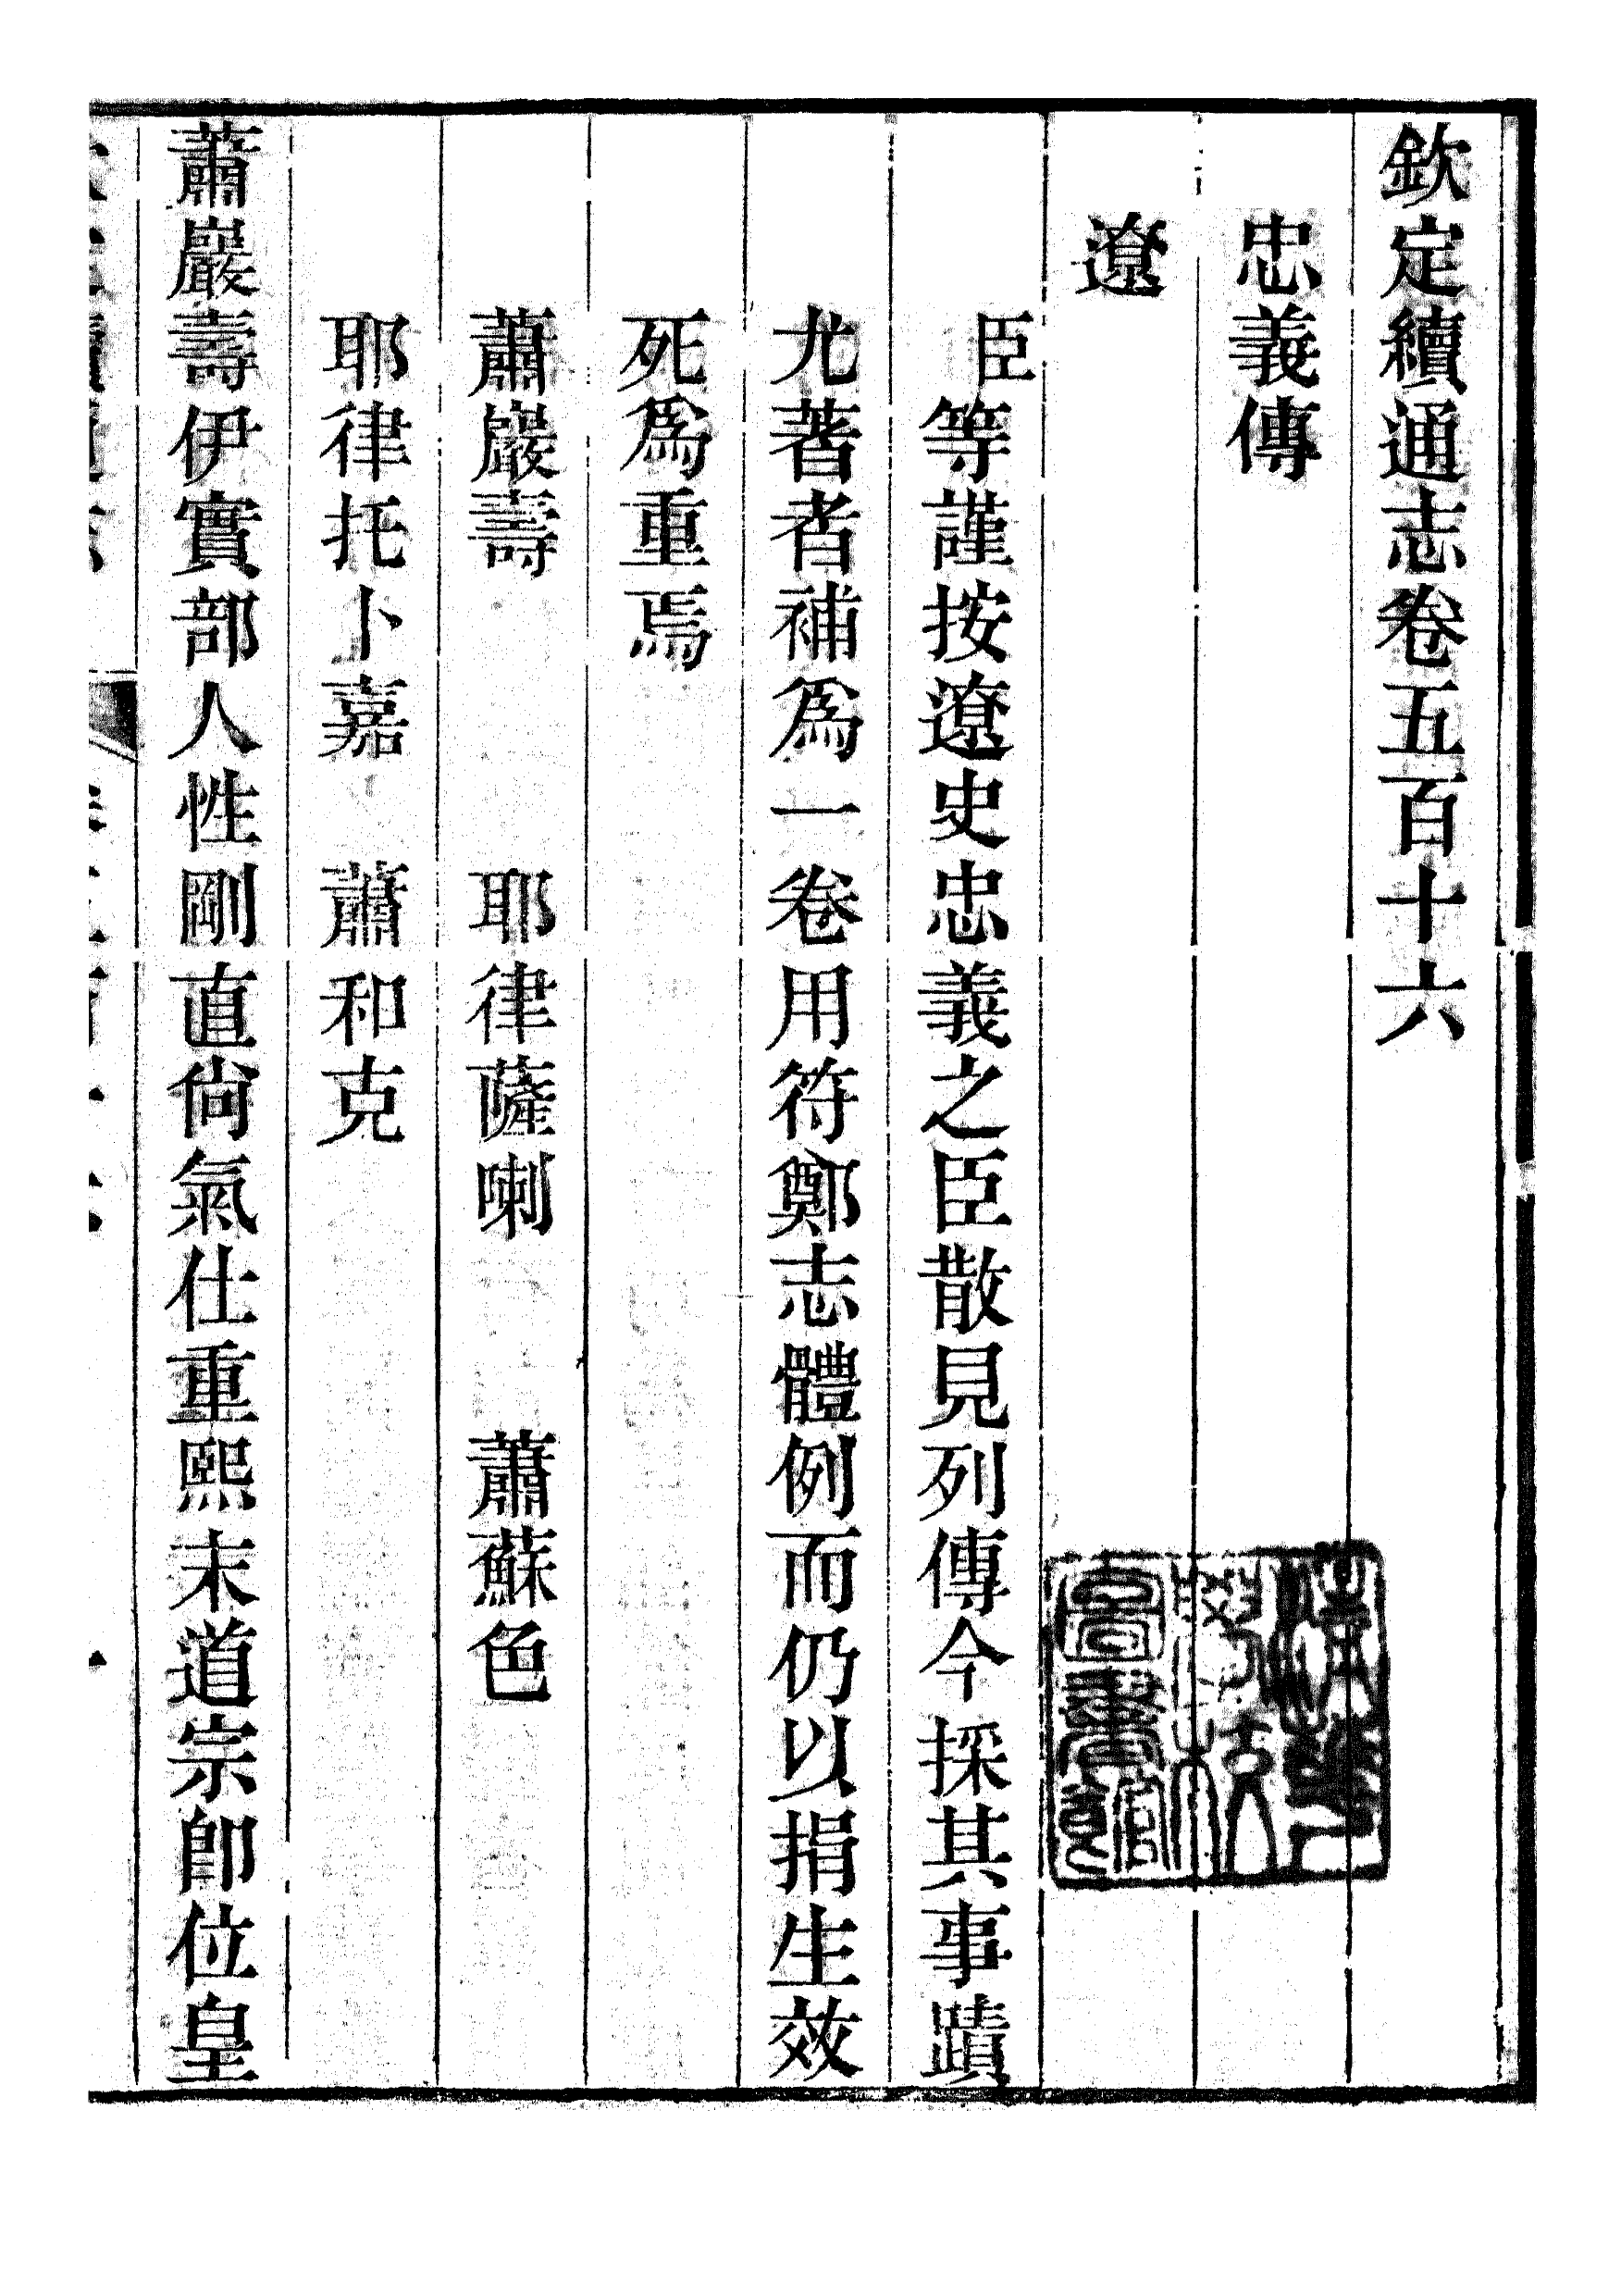 欽定續通志卷五百十六
忠義傳
遼
臣等謹按遼史忠義之臣散見列傳今採其事蹟
尤著者補爲一卷用符鄭志體例而仍以捐生效
死爲重焉
蕭巖壽　耶律薩喇　蕭蘇色
耶律托卜嘉　蕭和克
蕭巖壽伊實部人性剛直尙氣仕重熙末道宗卽位皇